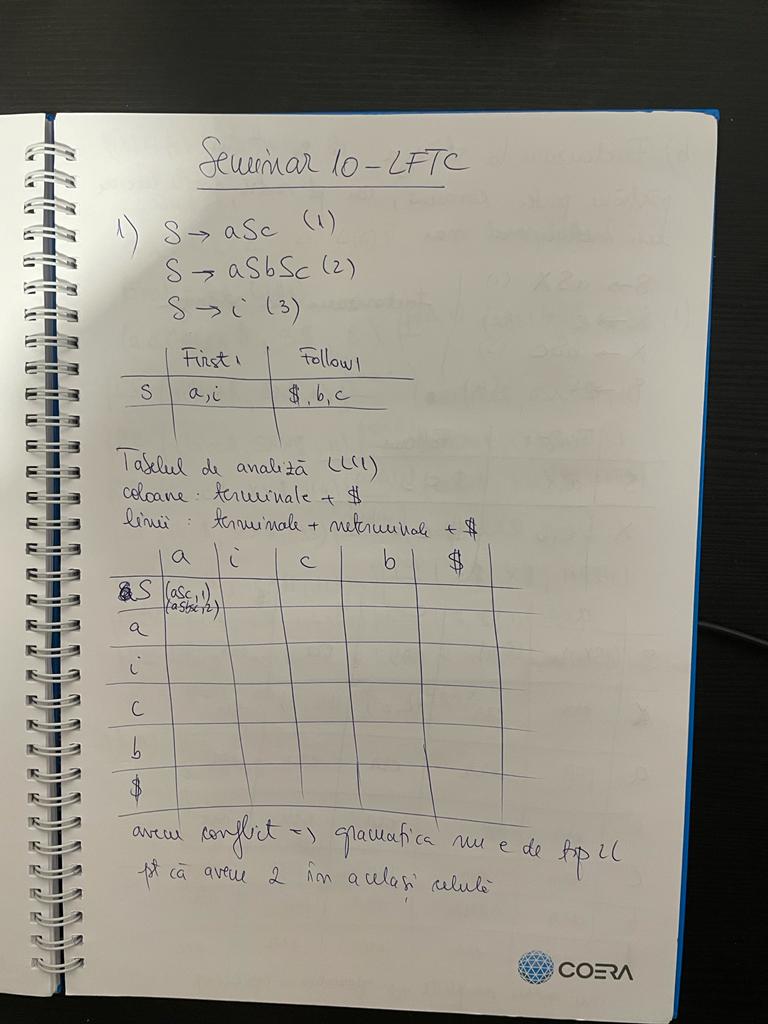 Seminar 10 - LFTC
1) S → aSc (1)
S → aSbSc (2)
S → i (3)
First1 Follow1
S a, i $, b, c
Tabelul de analiză LL(1)
coloane: terminale + $
linii: terminale + neterminale + $
a i c b $
S (aSc, 1)
(aSbSc, 2)
a
i
c
b
$
avem conflict => gramatica nu e de tip LL
pt că avem 2 în același celulă
COERA